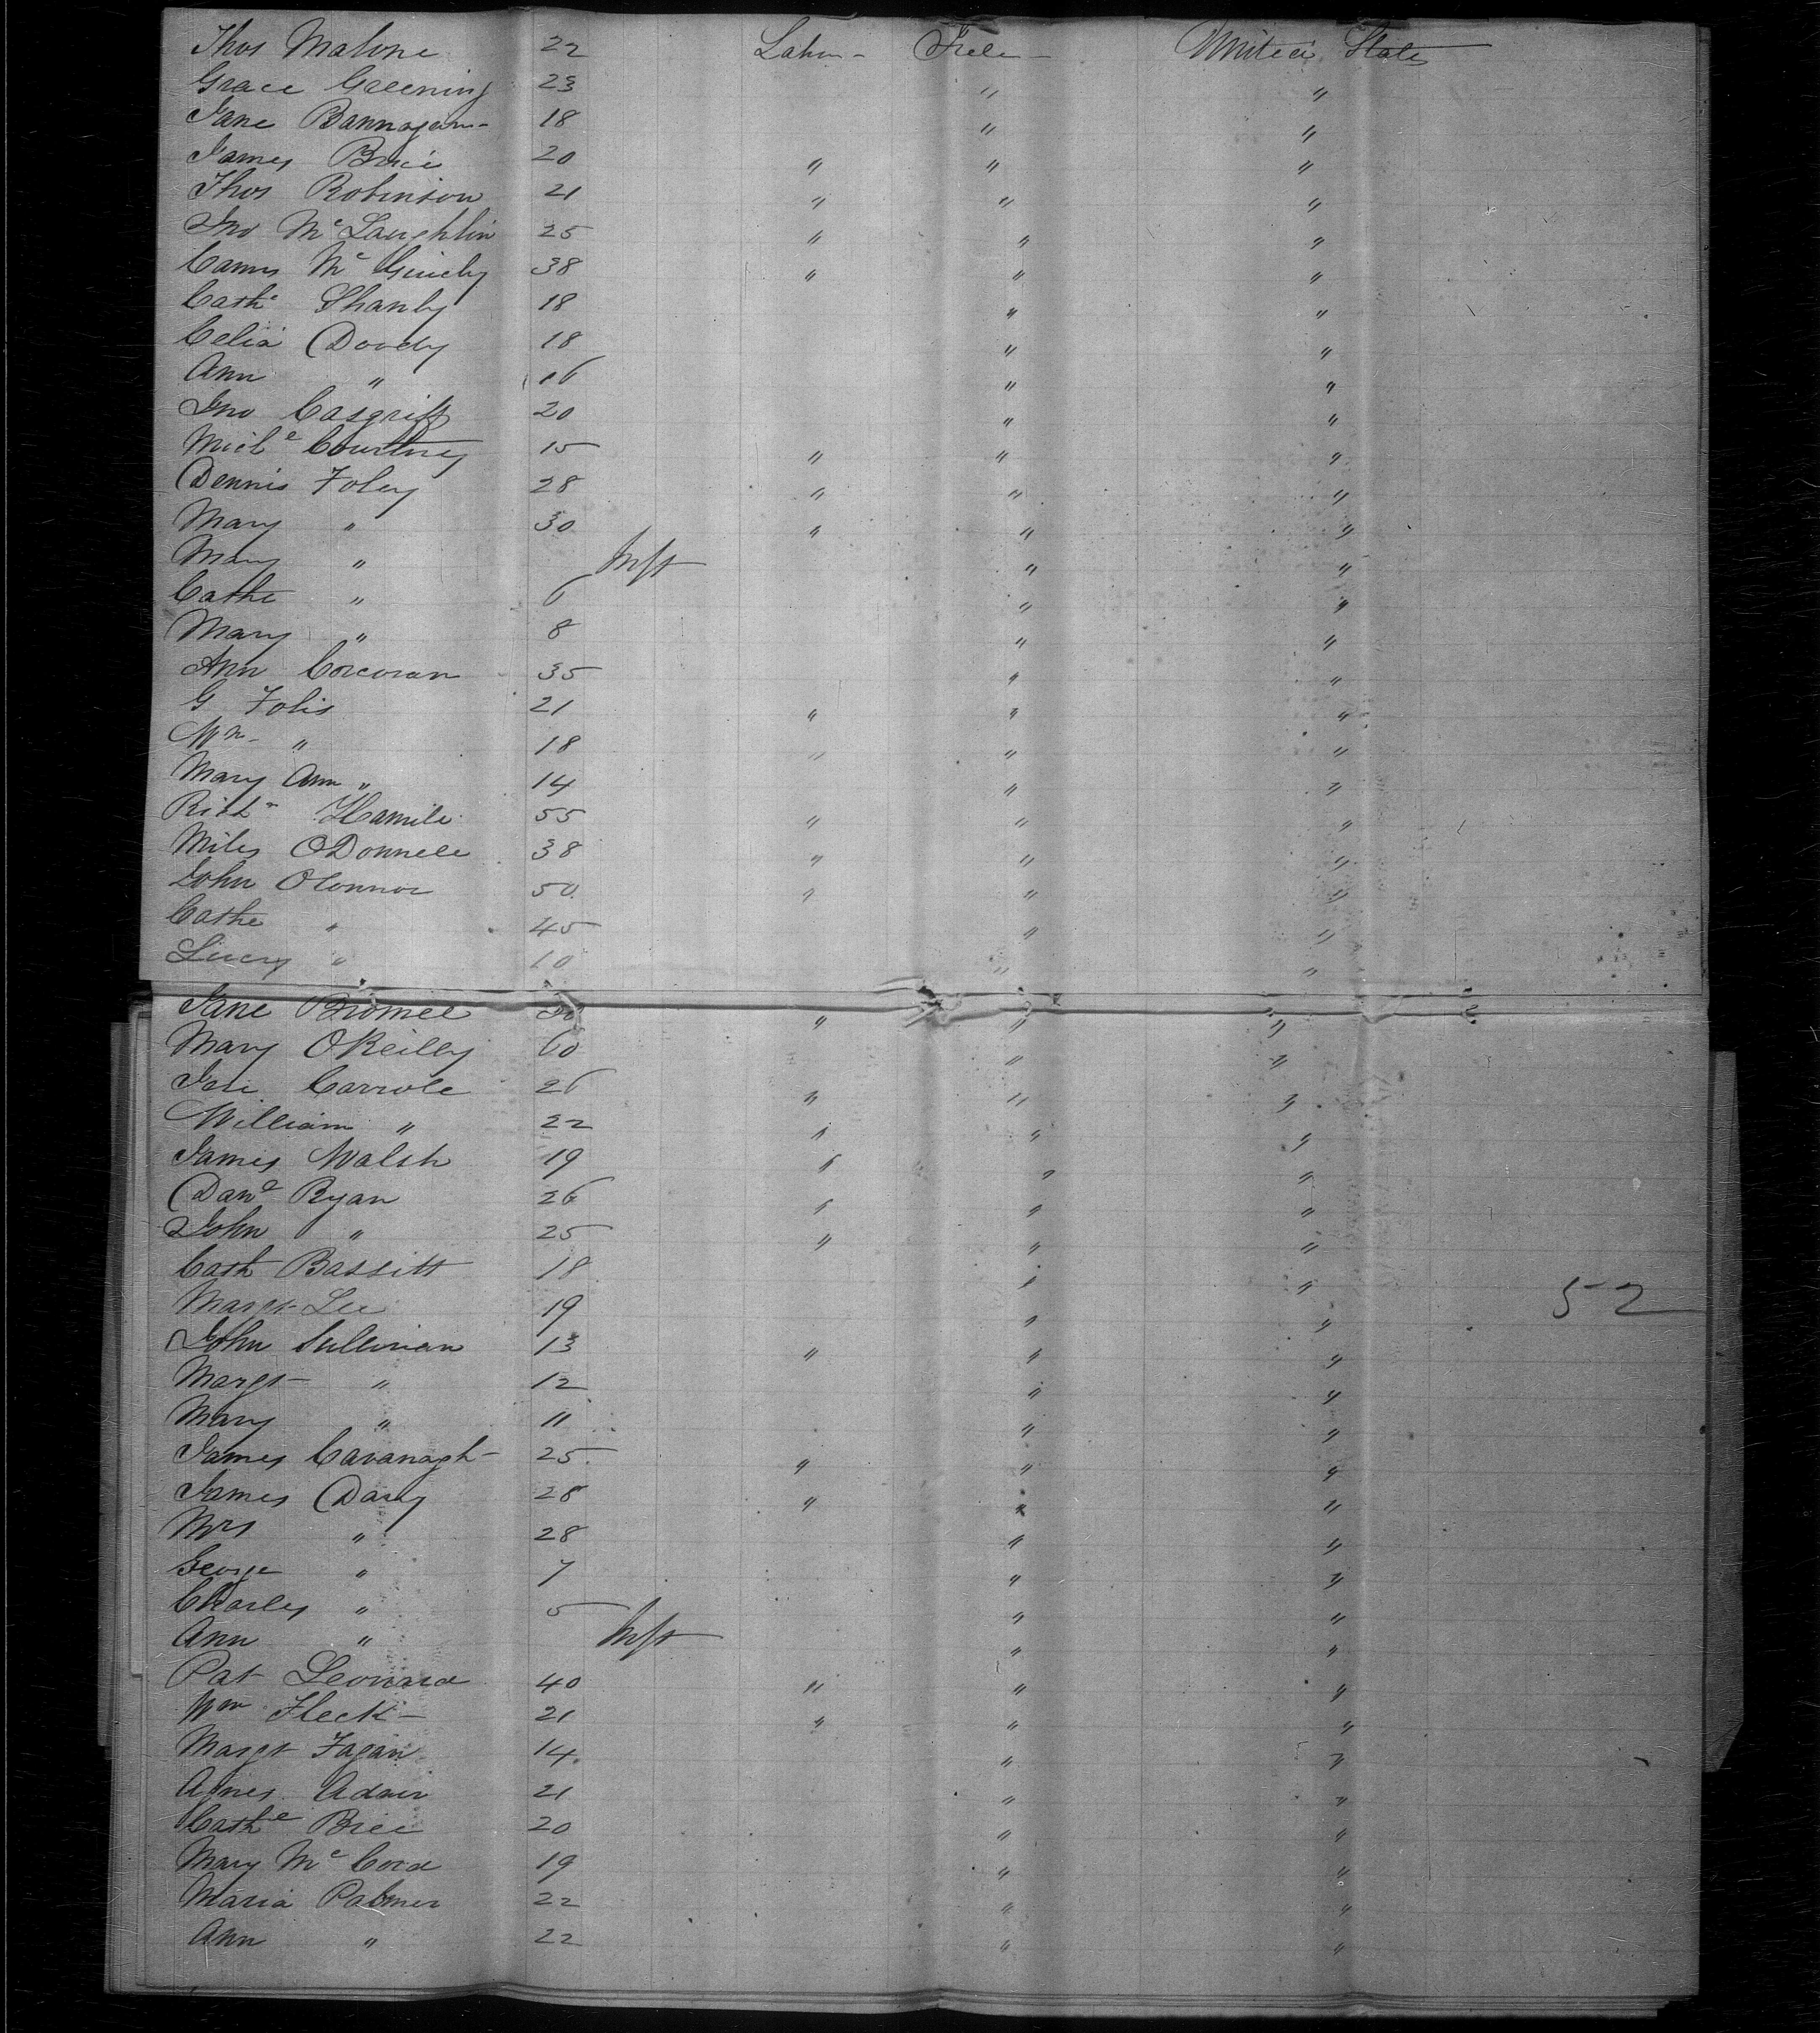 Thos Malone 22 Labor - Irela - United States
Grace Greening 23 " "
Jane Bannagan - 18 " "
James Brice 20 " " "
Thos Robinson 21 " " "
Jno McLaughlin 25 " " "
Mc 38 " " "
Cathe Shanly 18 " "
Celia Doody 18 " "
Ann " 16 " "
Jno Casgriff 20 " "
Michl Courtney 15 " " "
Dennis Foley 28 " " "
Mary " 30 " " "
Mary " Inft " "
Cathe " 6 " "
Mary " 8 " "
Ann Corcoran 35 " "
G Folis 21 " " "
Wm - " 18 " " "
Mary Ann " 14 " "
Richd Hamill 55 " " "
Miles ODonnell 38 " " "
John OConnor 50 " " "
Cathe " 45 " "
Lucy " 10 " "
Jane 20 " " "
Mary OReilly 60 " "
Carroll 26 " " "
William " 22 " " "
James Walsh 19 " " "
Danl Ryan 26 " " "
John " 25 " " "
Cath Bassitt 18 " "
Margt Lee 19 " "
52
John Sullivan 13 " " "
Margt " 12 " "
Mary " 11 " "
James Cavanagh - 25 " " "
James Darcy 28 " " "
Mrs " 28 " "
George " 7 " "
Charles " 5 " "
Ann " Inft " "
Pat Leonard 40 " " "
Wm Fleck - 21 " " "
Margt Fagan 14 " "
Agnes Adair 21 " "
Cathe Brice 20 " "
Mary McCord 19 " "
Maria Palmer 22 " "
Ann " 22 " "